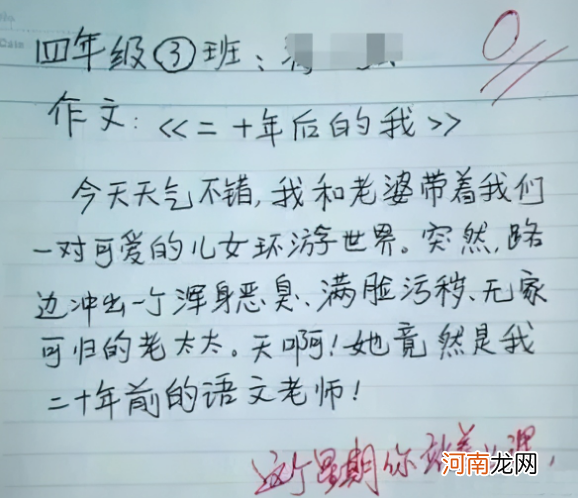 四年级③班：
0
作文：《二十年后的我》
今天天气不错，我和老婆带着我们
一对可爱的儿女环游世界。突然，路
边冲出一个浑身恶臭、满脸污秽、无家
可归的老太太。天啊！她竟然是我
二十年前的语文老师！
这个星期你站着 课，
河南龙网